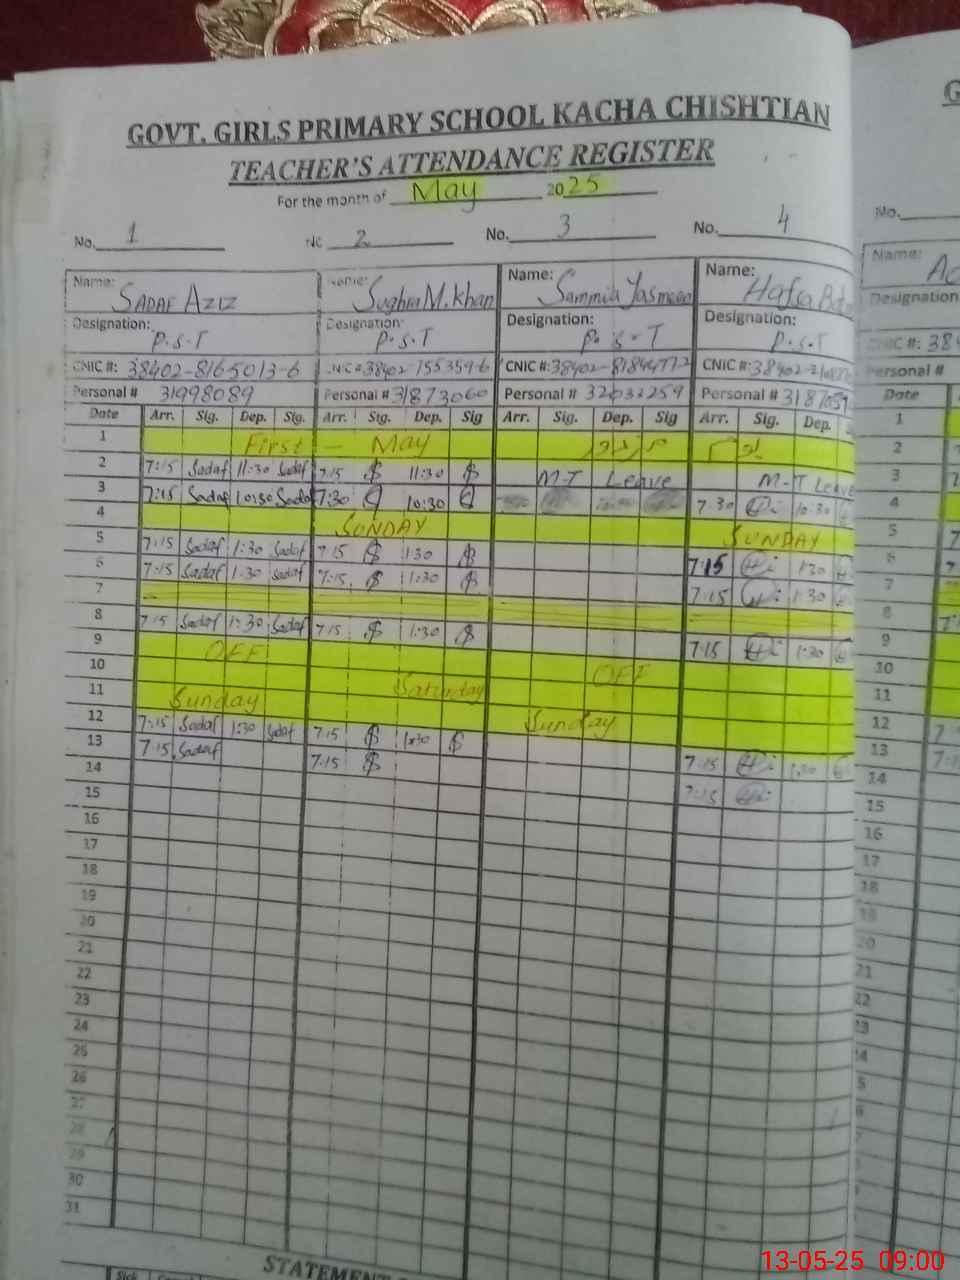 GOVT. GIRLS PRIMARY SCHOOL KACHA CHISHTIAN
TEACHER'S ATTENDANCE REGISTER
For the month of May 2025
No. 1 No. 2 No. 3 No. 4 No.
Name: SADAF AZIZ Name: Sughra M. Khan Name: Sammia Yasmeen Name: Hafsa Name:
Designation: P.S.T Designation: P.S.T Designation: P.S.T Designation: P.S.T Designation
CNIC #: 38402-8165013-6 CNIC #: 38402-755359-6 CNIC #: 38402- CNIC #: 38402- CNIC #: 384
Personal # 31998089 Personal # 31873060 Personal # Personal # Personal #
Date Arr. Sig. Dep. Sig. Arr. Sig. Dep. Sig Arr. Sig. Dep. Sig Arr. Sig. Dep. Date
1 First - May 1
2 7:15 Sadaf 11:30 Sadaf 7:15 $ 11:30 $ M-T Leave M-T Leave 2
3 7:15 Sadaf 10:30 Sadaf 7:30 10:30 7.30 10:30 3
4 SUNDAY SUNDAY 4
5 7:15 Sadaf 1:30 Sadaf 7:15 $ 1:30 $ 7:15 1:30 5
6 7:15 Sadaf 1:30 Sadaf 7:15 $ 1:30 $ 7:15 1:30 6
7
8 7:15 Sadaf 1:30 Sadaf 7:15 $ 1:30 $ 7:15 1:30 8
9 OFF OFF 9
10 Saturday 10
11 Sunday Sunday 11
12 7:15 Sadaf 1:30 Sadaf 7:15 $ 1:30 $ 7:15 1:30 12
13 7:15 Sadaf 7:15 $ 7:15 13
14 14
15 15
16 16
17 17
18 18
19
20 20
21 21
22 22
23
24
25
26
27
28
29
30
31
STATEMENT
Sick
13-05-25 09:00